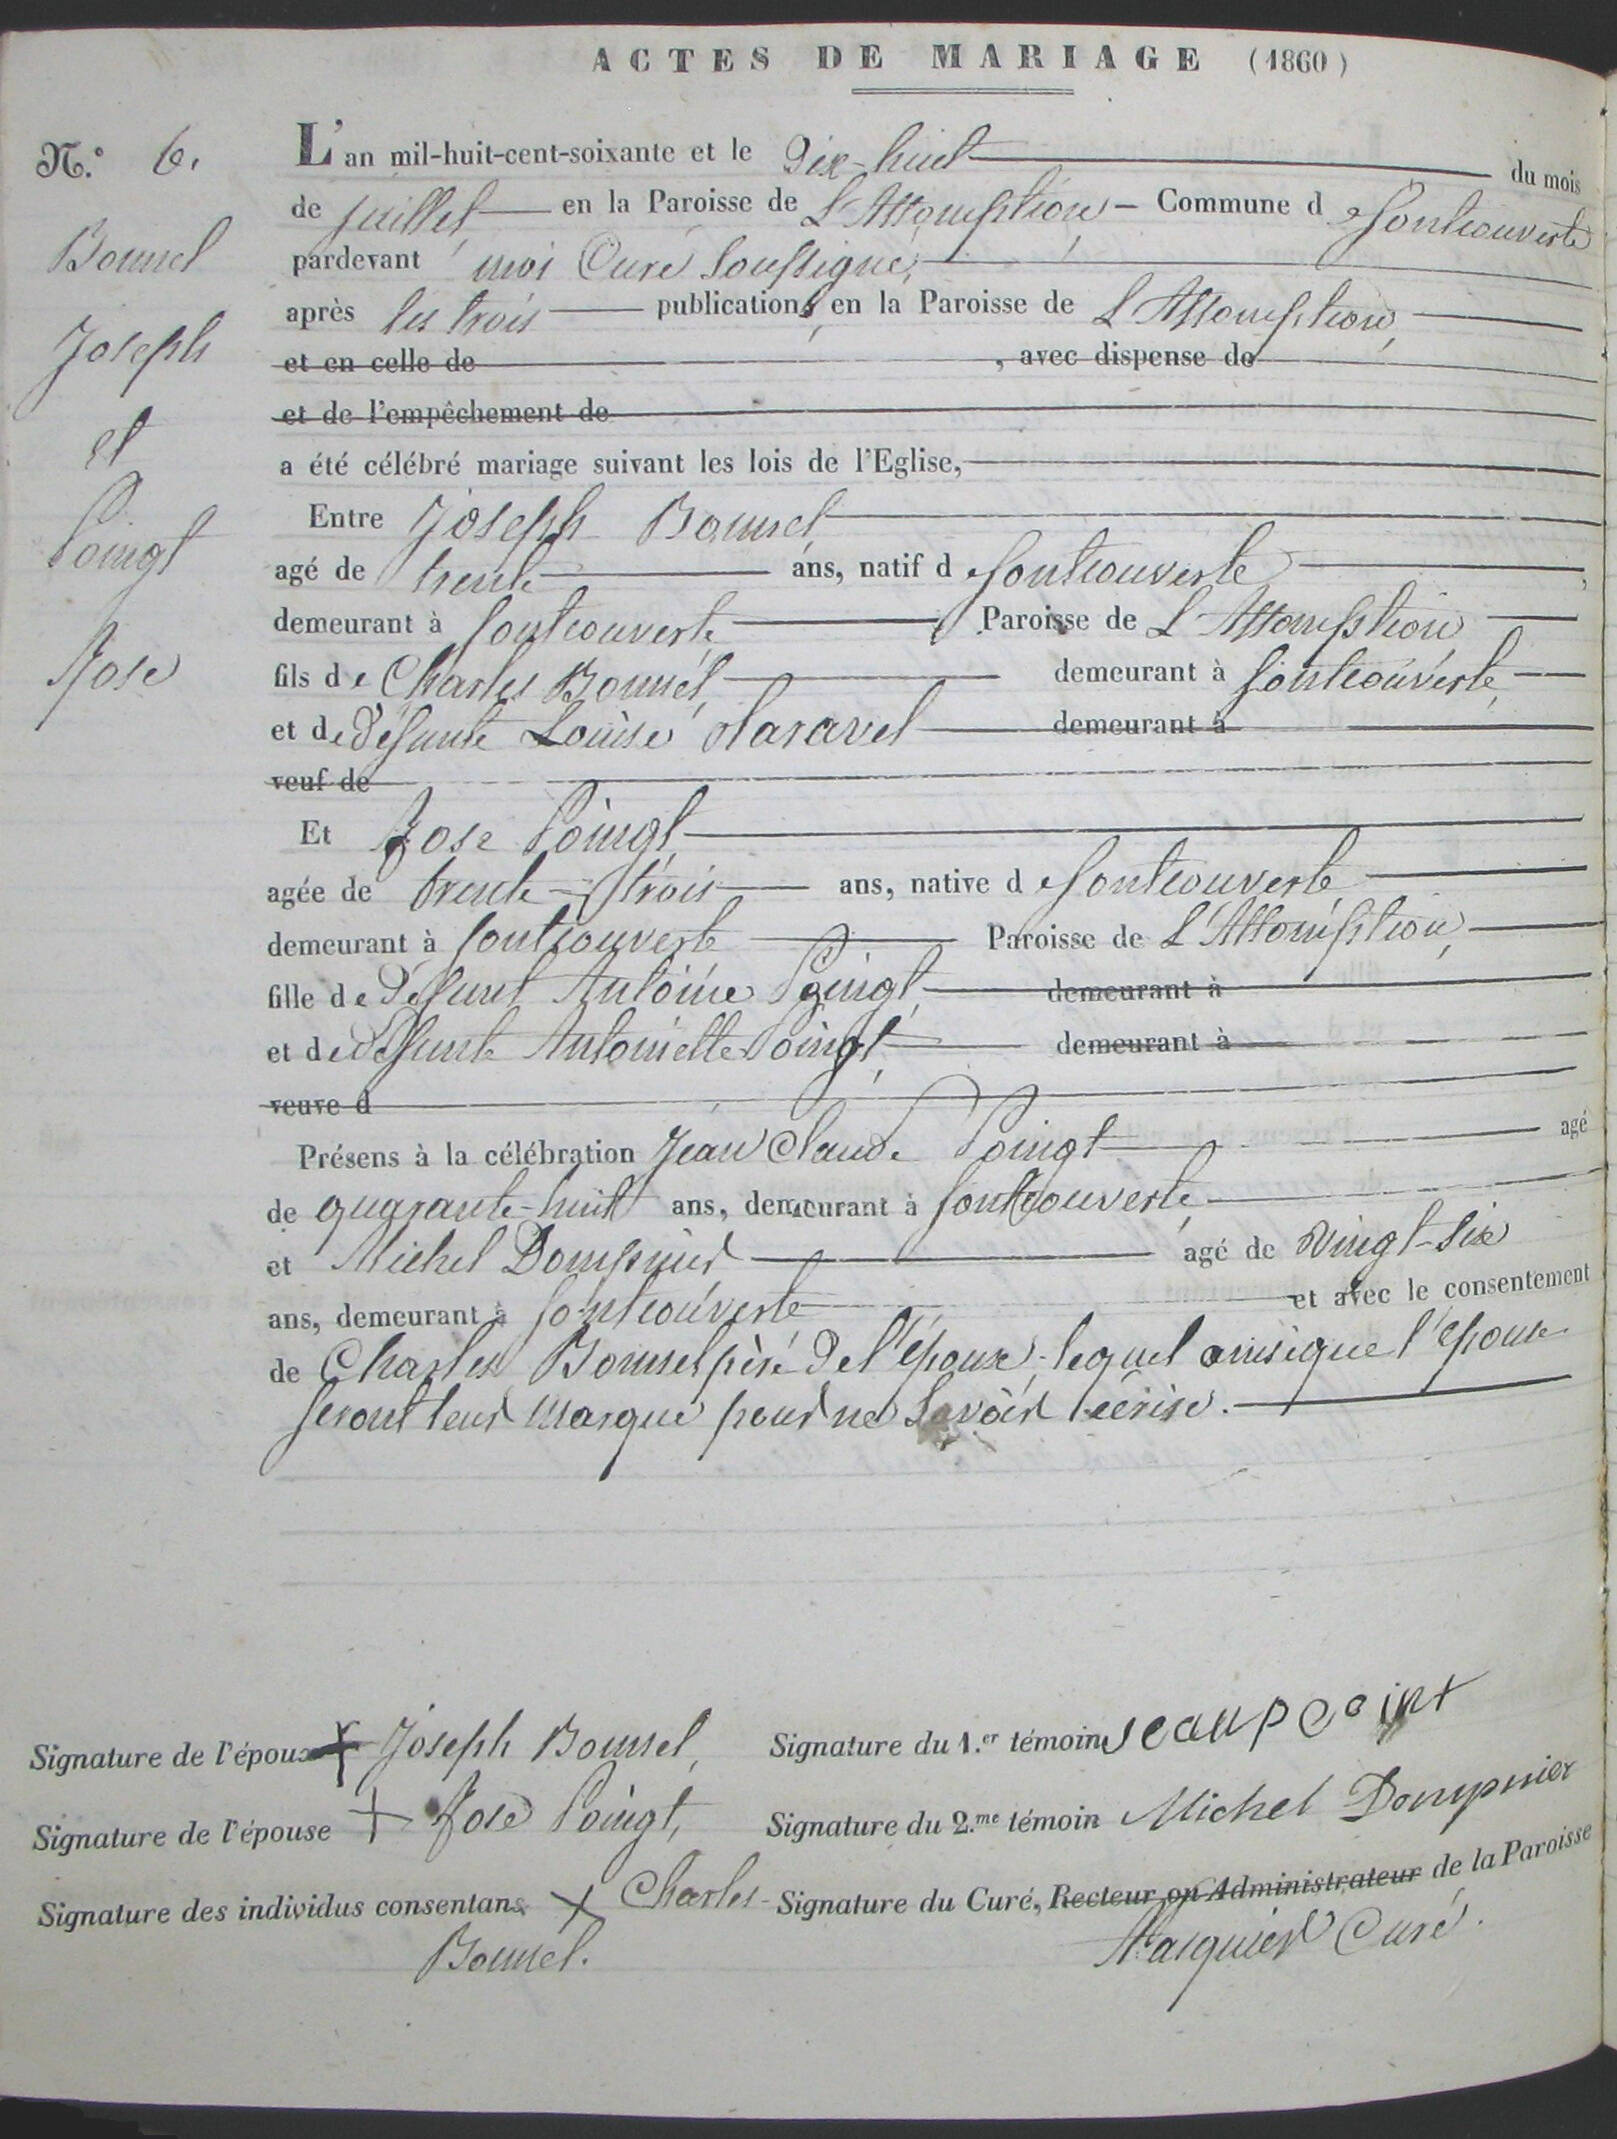 ACTES DE MARIAGE (1860)
N.° 6.
L'an mil-huit-cent-soixante et le dix-huit du mois
de juillet en la Paroisse de L'Assomption - Commune de fontcouverte
Bonnel
pardevant moi Curé soussigné,
après les trois publications, en la Paroisse de L'Assomption,
Joseph
et en celle de , avec dispense de
et de l'empêchement de
et
a été célébré mariage suivant les lois de l'Eglise,
Poingt
Entre Joseph Bonnel,
agé de trente ans, natif de fontcouverte,
demeurant à fontcouverte, Paroisse de L'Assomption
Rose
fils de Charles Bonnel, demeurant à fontcouverte,
et de défunte Louise demeurant à
veuf de
Et Rose Poingt,
agée de trente-trois ans, native de fontcouverte,
demeurant à fontcouverte Paroisse de L'Assomption,
fille de défunt Antoine Poingt, demeurant à
et de défunte Antoinette Poingt, demeurant à
veuve d
Présens à la célébration Jean Claude Poingt agé
de quarante-huit ans, demeurant à fontcouverte,
et Michel Dompnier agé de vingt-six
ans, demeurant à fontcouverte et avec le consentement
de Charles Bonnel père de l'époux, lequel ainsique l'épouse
feront leur marque pour ne savoir écrire.
Signature de l'époux + Joseph Bonnel, Signature du 1.er témoin jean poaint
Signature de l'épouse + Rose Poingt, Signature du 2.me témoin Michel Dompnier
Signature des individus consentans + Charles Signature du Curé, Recteur ou Administrateur de la Paroisse
Bonnel. Curé.